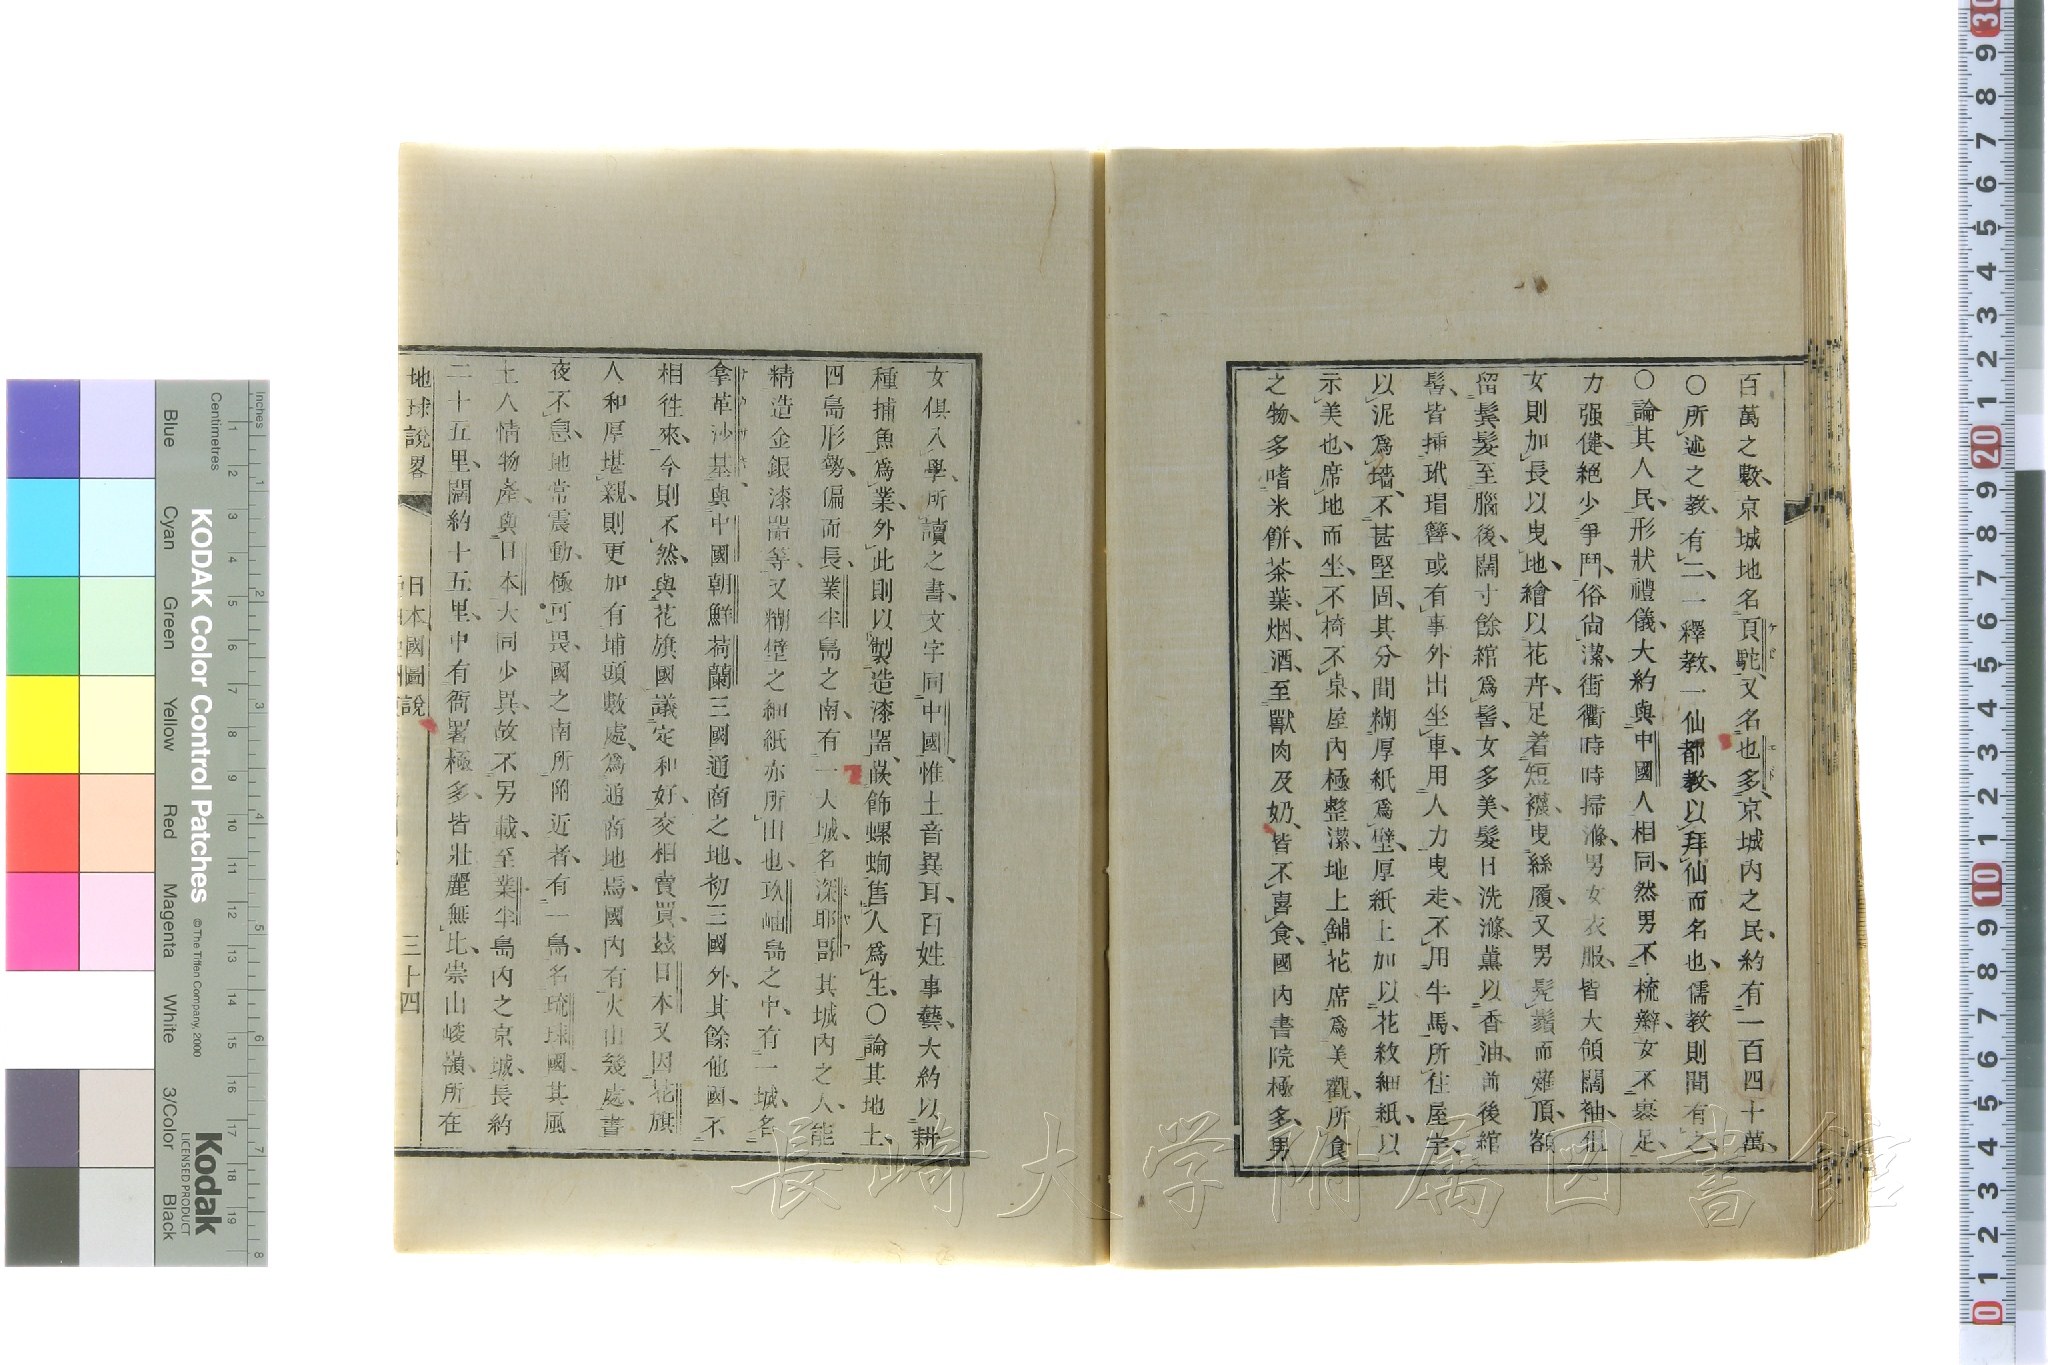 百萬之數、京城地名頁駝、又名也多、京城內之民、約有一百四十萬、
〇所述之教、有二、一釋教、一仙都教、以拜仙而名也、儒教則間有之、
〇論其人民、形狀禮儀、大約與中國人相同、然男不梳辮、女不裹足、
力强健、絕少爭鬥、俗尙潔、街衢時時掃滌、男女衣服、皆大領闊袖、但
女則加長以曳地、繪以花卉、足着短襪、曳絲履、又男髡鬚而薙頂、額
留鬂髮至腦後、闊寸餘綰爲髻、女多美髮、日洗滌薰以香油、前後綰
髻、皆揷玳瑁簪、或有事外出坐車、用人力曳走、不用牛馬、所住屋宇、
以泥爲墻、不甚堅固、其分間糊厚紙爲壁、厚紙上加以花紋細紙、以
示美也、席地而坐、不椅不桌、屋內極整潔、地上舖花席爲美觀、所食
之物、多嗜米餠茶葉、烟酒、至獸肉及奶、皆不喜食、國內書院極多、男
女俱入學、所讀之書、文字同中國、惟土音異耳、百姓事藝、大約以耕
種捕魚爲業、外此則以製造漆器、嵌飾螺蜔售人爲生、〇論其地土、
四島形勢、偏而長、業尘島之南、有一大城、名深耶哥、其城內之人、能
精造金銀漆器等、又糊壁之細紙亦所出也、玖岫島之中、有一城、名
拿革沙基、與中國朝鮮荷蘭三國通商之地、初三國外、其餘他國、不
相往來、今則不然、與花旗國議定和好、交相賣買、兹日本又因花旗
人和厚堪親、則更加有埔頭數處、爲通商地焉、國內有火山幾處、晝
夜不息、地常震動、極可畏、國之南所附近者、有一島、名琉球國、其風
土人情物產、與日本大同少異、故不另載、至業尘島內之京城、長約
二十五里、闊約十五里、中有衙署極多、皆壯麗無比、崇山峻嶺、所在
地球說畧 日本國圖說 三十四
長崎大学附属図書館
KODAK Color Control Patches
© The Tiffen Company, 2000
Kodak
LICENSED PRODUCT
Blue Cyan Green Yellow Red Magenta White 3/Color Black
Inches
Centimetres